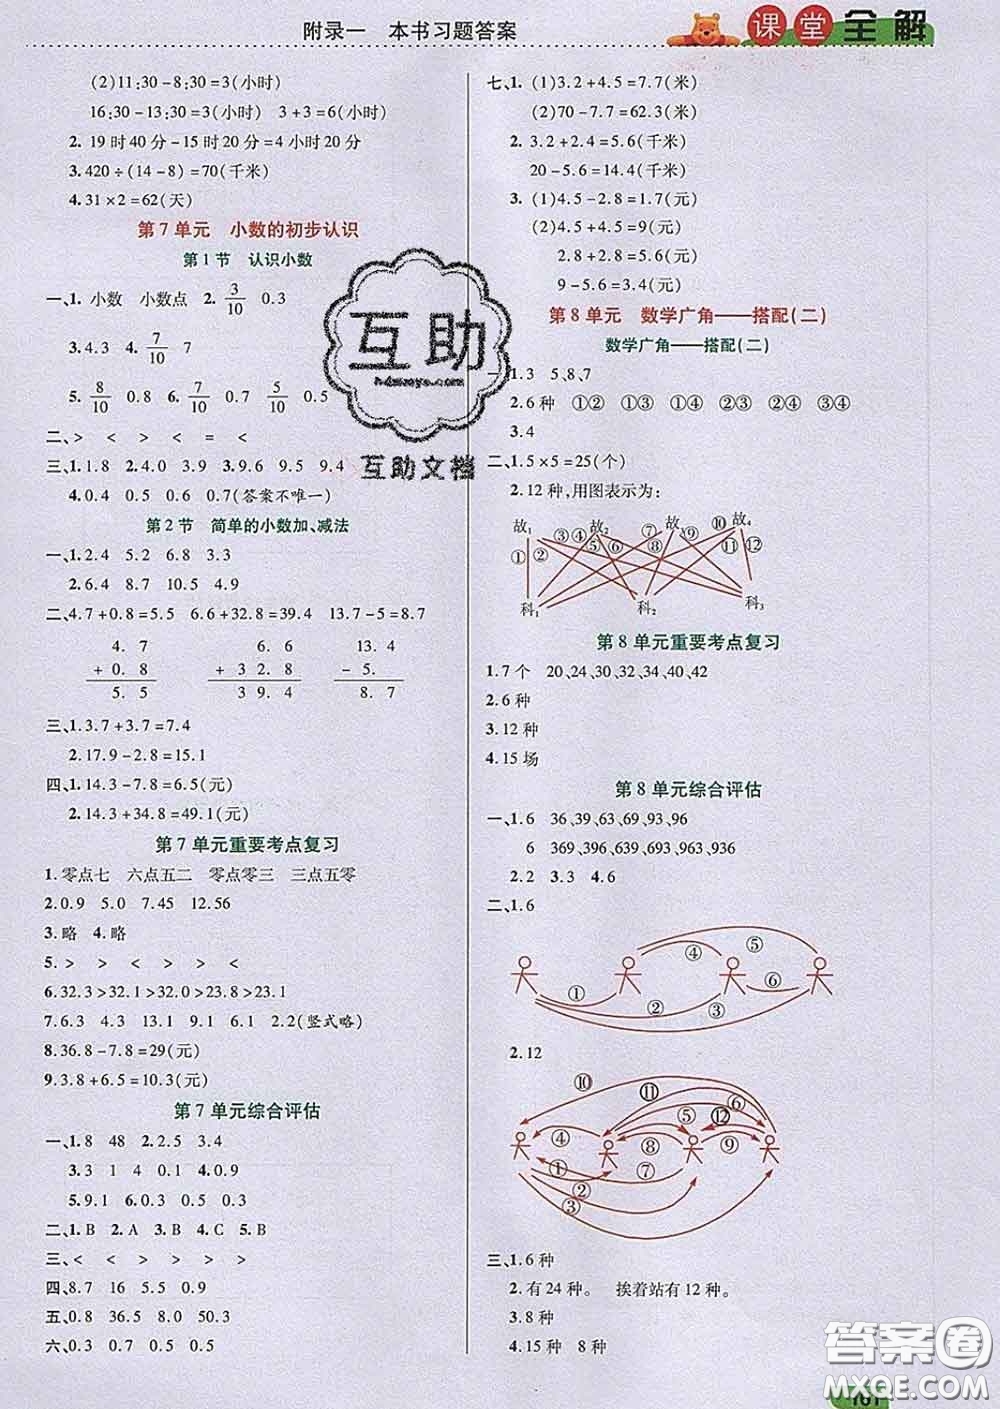 附录一 本书习题答案
课堂全解
(2)11:30-8:30=3(小时)
16:30-13:30=3(小时) 3+3=6(小时)
2. 19时40分-15时20分=4小时20分
3.420÷(14-8)=70(千米)
4.31×2=62(天)
第7单元 小数的初步认识
第1节 认识小数
一、1.小数 小数点 2. 3/10 0.3
3.4.3 4. 7/10 7
5. 8/10 0.8 6. 7/10 0.7 5/10 0.5
二、> < > < = <
三、1.1.8 2.4.0 3.9 3.9.6 9.5 9.4
4.0.4 0.5 0.6 0.7(答案不唯一)
第2节 简单的小数加、减法
一、1.2.4 5.2 6.8 3.3
2.6.4 8.7 10.5 4.9
二、4.7+0.8=5.5 6.6+32.8=39.4 13.7-5=8.7
4.7 6.6 13.4
+0.8 +32.8 -5.
5.5 39.4 8.7
三、1.3.7+3.7=7.4
2.17.9-2.8=15.1
四、1.14.3-7.8=6.5(元)
2.14.3+34.8=49.1(元)
第7单元重要考点复习
1.零点七 六点五二 零点零三 三点五零
2.0.9 5.0 7.45 12.56
3.略 4.略
5.> > < > > <
6.32.3>32.1>32.0>23.2>23.1
7.6.3 4.3 13.1 9.1 6.1 2.2(竖式略)
8.36.8-7.8=29(元)
9.3.8+6.5=10.3(元)
第7单元综合评估
一、1.8 48 2.2.5 3.4
3.3 1 4 0.1 4.0.9
5.9.1 6.0.3 0.5 0.3
二、1.B 2.A 3.B 4.C 5.B
三、< < > > > >
四、8.7 16 5.5 0.9
五、0.8 36.5 8.0 50.3
六、0.3 0.7 0.5 0.5
七、1.(1)3.2+4.5=7.7(米)
(2)70-7.7=62.3(米)
2.3.2+2.4=5.6(千米)
20-5.6=14.4(千米)
3.(1)4.5-2.8=1.7(元)
(2)4.5-2.8=1.7(元)
2.8+2.8=5.6(元)
9-5.6=3.4(元)
第8单元 数学广角——搭配(二)
数学广角——搭配(二)
一、1.3 5、8、7
2.6种 ①② ①③ ①④ ②③ ②④ ③④
3.4
二、1.5×5=25(个)
2.12种,用图表示为:
故1 ③④ 故2 ⑦ 故3 ⑩ 故4
① ② ⑤ ⑥ ⑧ ⑨ ⑪ ⑫
科1 科2 科3
第8单元重要考点复习
1.7个 20、24、30、32、34、40、42
2.6种
3.12种
4.15场
第8单元综合评估
一、1.6 36、39、63、69、93、96
6 369、396、639、693、963、936
2.2 3.3 4.6
二、1.6
⑤
④
① ② ③ ⑥
2.12
⑩ ⑪ ⑥
⑤ ⑫
④ ⑧ ⑨
① ⑦
②
③
三、1.6种
2.有24种。 挨着站有12种。
3.8种
4.15种 8种
互助
互助文档
答案圈
MXQE.COM
161